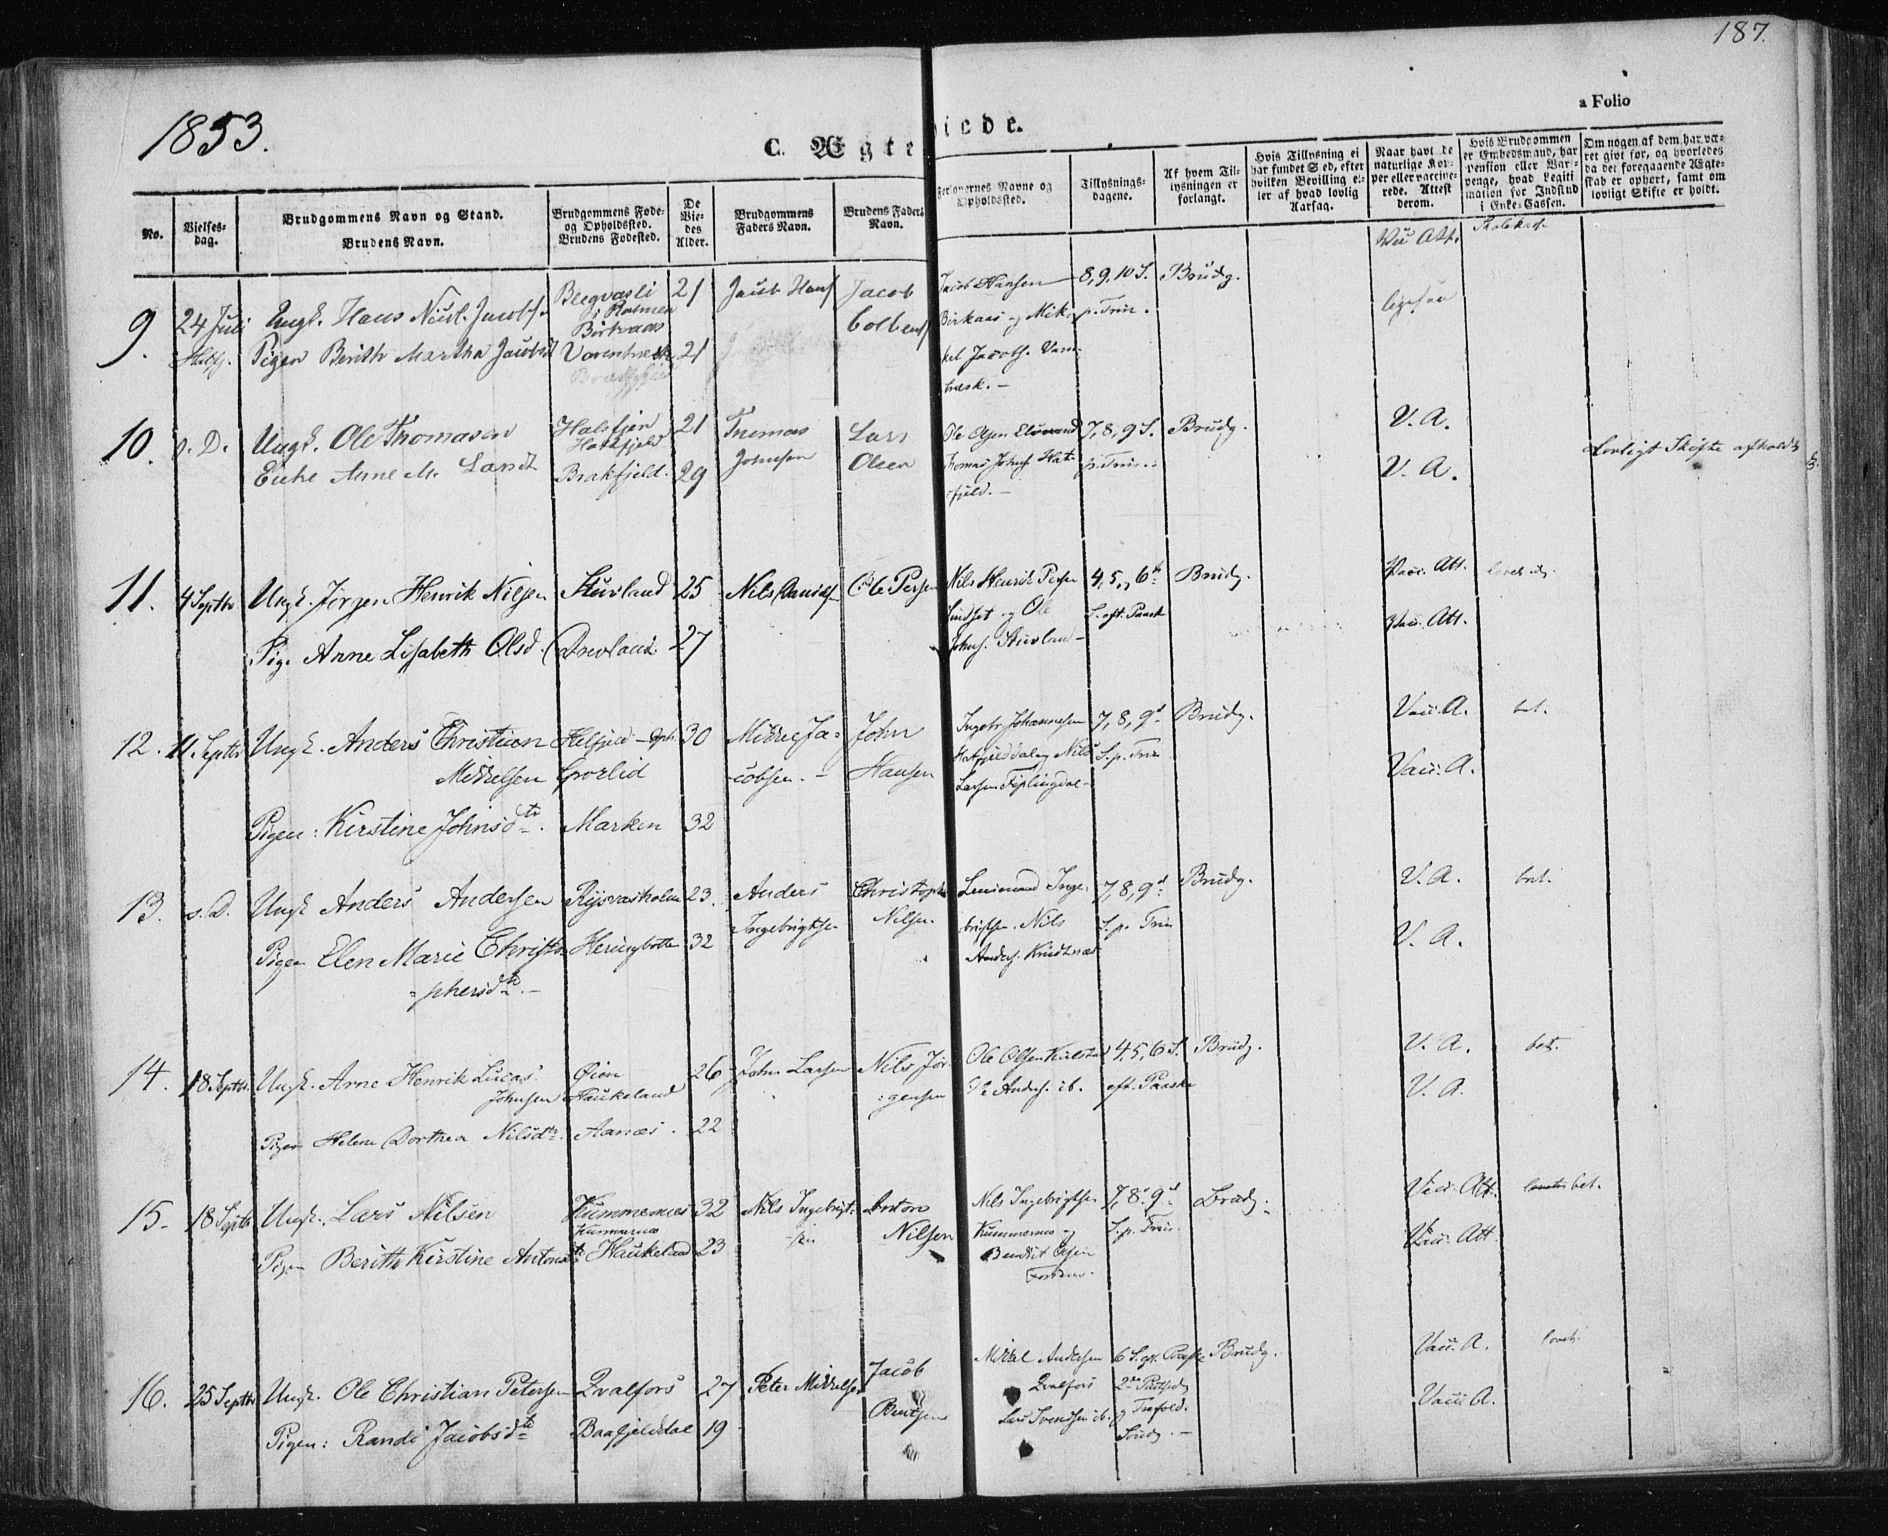 187.
1853.
a Folio
C. Ægte
viede.
No.
Vielses-
dag.
Brudgommens Navn og Stand.
Brudens Navn.
Brudgommens Føde-
og Opholdssted.
Brudens Fødested.
De
Vie-
des
Alder.
Brudgommens
Faders Navn.
Brudens Faders
Navn.
Forlovernes Navne og
Opholdssted.
Tillysnings-
dagene.
Af hvem Til-
lysningen er
forlangt.
Hvis Tillysning ei
har fundet Sted, efter
hvilken Bevilling el-
ler af hvad lovlig
Aarsag.
Naar havt de
naturlige Kop-
per eller vaccine-
rede. Attest
derom.
Hvis Brudgommen
er Embedsmand, har
Pension eller Var-
penge, hvad Legiti
mation for Indskud
i Enke-Cassen.
Om nogen af dem har væ-
ret gift før, og hvorledes
da det foregaaende Ægte-
skab er ophørt, samt om
lovligt Skifte er holdt.
9.
24 Juli
Ungk. Hans Jacobs.
Pigen Berith Martha Jacobsd
Bergvasli
Birkaas
21
21
Jacob Hans
Jacob
Jacob Hansen
Birkaas og Mik-
kel Jacobs. Varn-
træsk. -
8, 9, 10 S.
p. Trin.
Brudg.
Att.
ligesaa
10.
s. D.
Ungk. Ole Thomasen
Enke Anne M. Larsd
Hatfjeld
Brakfjeld.
21
29
Thomas
Johnsen
Lars
Olsen
Ole Olsen
Thomas Johns. Hat-
fjeld. -
7, 8, 9 S.
p. Trin.
Brudg.
V. A.
V. A.
Lovligt Skifte afholdt
11.
4 Septbr
Ungk. Jørgen Henrik Nilsen
Pige Anne Lisabeth Olsd.
Stuvland
Drevland
25
27
Nils Danielsen
Ole Persen
Nils Henrik Persen
Lindset og Ole
Johns. Stuvland -
4, 5, 6te
S. eft. Paask
Brudg.
Vacc. Att.
Vacc. Att.
12.
11 Septbr
Ungk. Anders Christian
Mikkelsen
Pigen: Kirstine Johnsdtr.
Marken
30
32
Mikkel Ja-
cobsen. -
John
Hansen
Ingebr Johannesen
Hatfjelddal og Nils
Larsen Fiplingdal -
7, 8, 9d
S. p. Trin
Brudg.
Vacc. A.
Vacc. A.
bet.
13.
s. D.
Ungk Anders Andersen
Pigen Elen Marie Christo-
phersdtr. -
Heringbotten
23.
32
Anders
Ingebrigtsen
Christopher
Nilsen.
Lensmand Inge-
brigtsen. Nils
Anders. Knudtnæs
7, 8, 9d
S. p. Trin
Brudg.
V. A.
V. A.
bet.
14.
18 Septbr.
Ungk. Arne Henrik Lucas
Johnsen
Pigen Helene Dorthea Nilsdtr.
Øien
Haukeland
Aanæs.
26
22
John Larsen
Nils Jør-
gensen
Ole Olsen Kulstad
Anders. ib.
4, 5, 6 S.
eft. Paaske
Brudg.
V. A.
V. A.
bet.
15.
18 Septbr
Ungk. Lars Nilsen
Pigen Berith Kirstine Antonsdtr
Kummernæs
Kummernæs
Haukeland
32
23
Nils Ingebrigt-
sen
Anton
Nilsen
Nils Ingebrigtsen
Kummernæs og
Bendik Olsen
7, 8, 9d
S. p. Trin.
Brudg.
Vacc. Att.
Vacc. Att
bet.
16.
25 Septbr
Ungk. Ole Christian Petersen
Pigen: Randi Jacobsdtr
Qvalfors
Baafjelddal
27
19
Peter Mikkelsen
Jacob
Bentsen
Mikkel Andersen
Qvalfors
Lars Svendsen ib.
6 S. eft. Paaske
2den Pintsedag
Trefold.
Sønd. -
Brudg.
Vacc. A.
Vacc. A.
lovet.